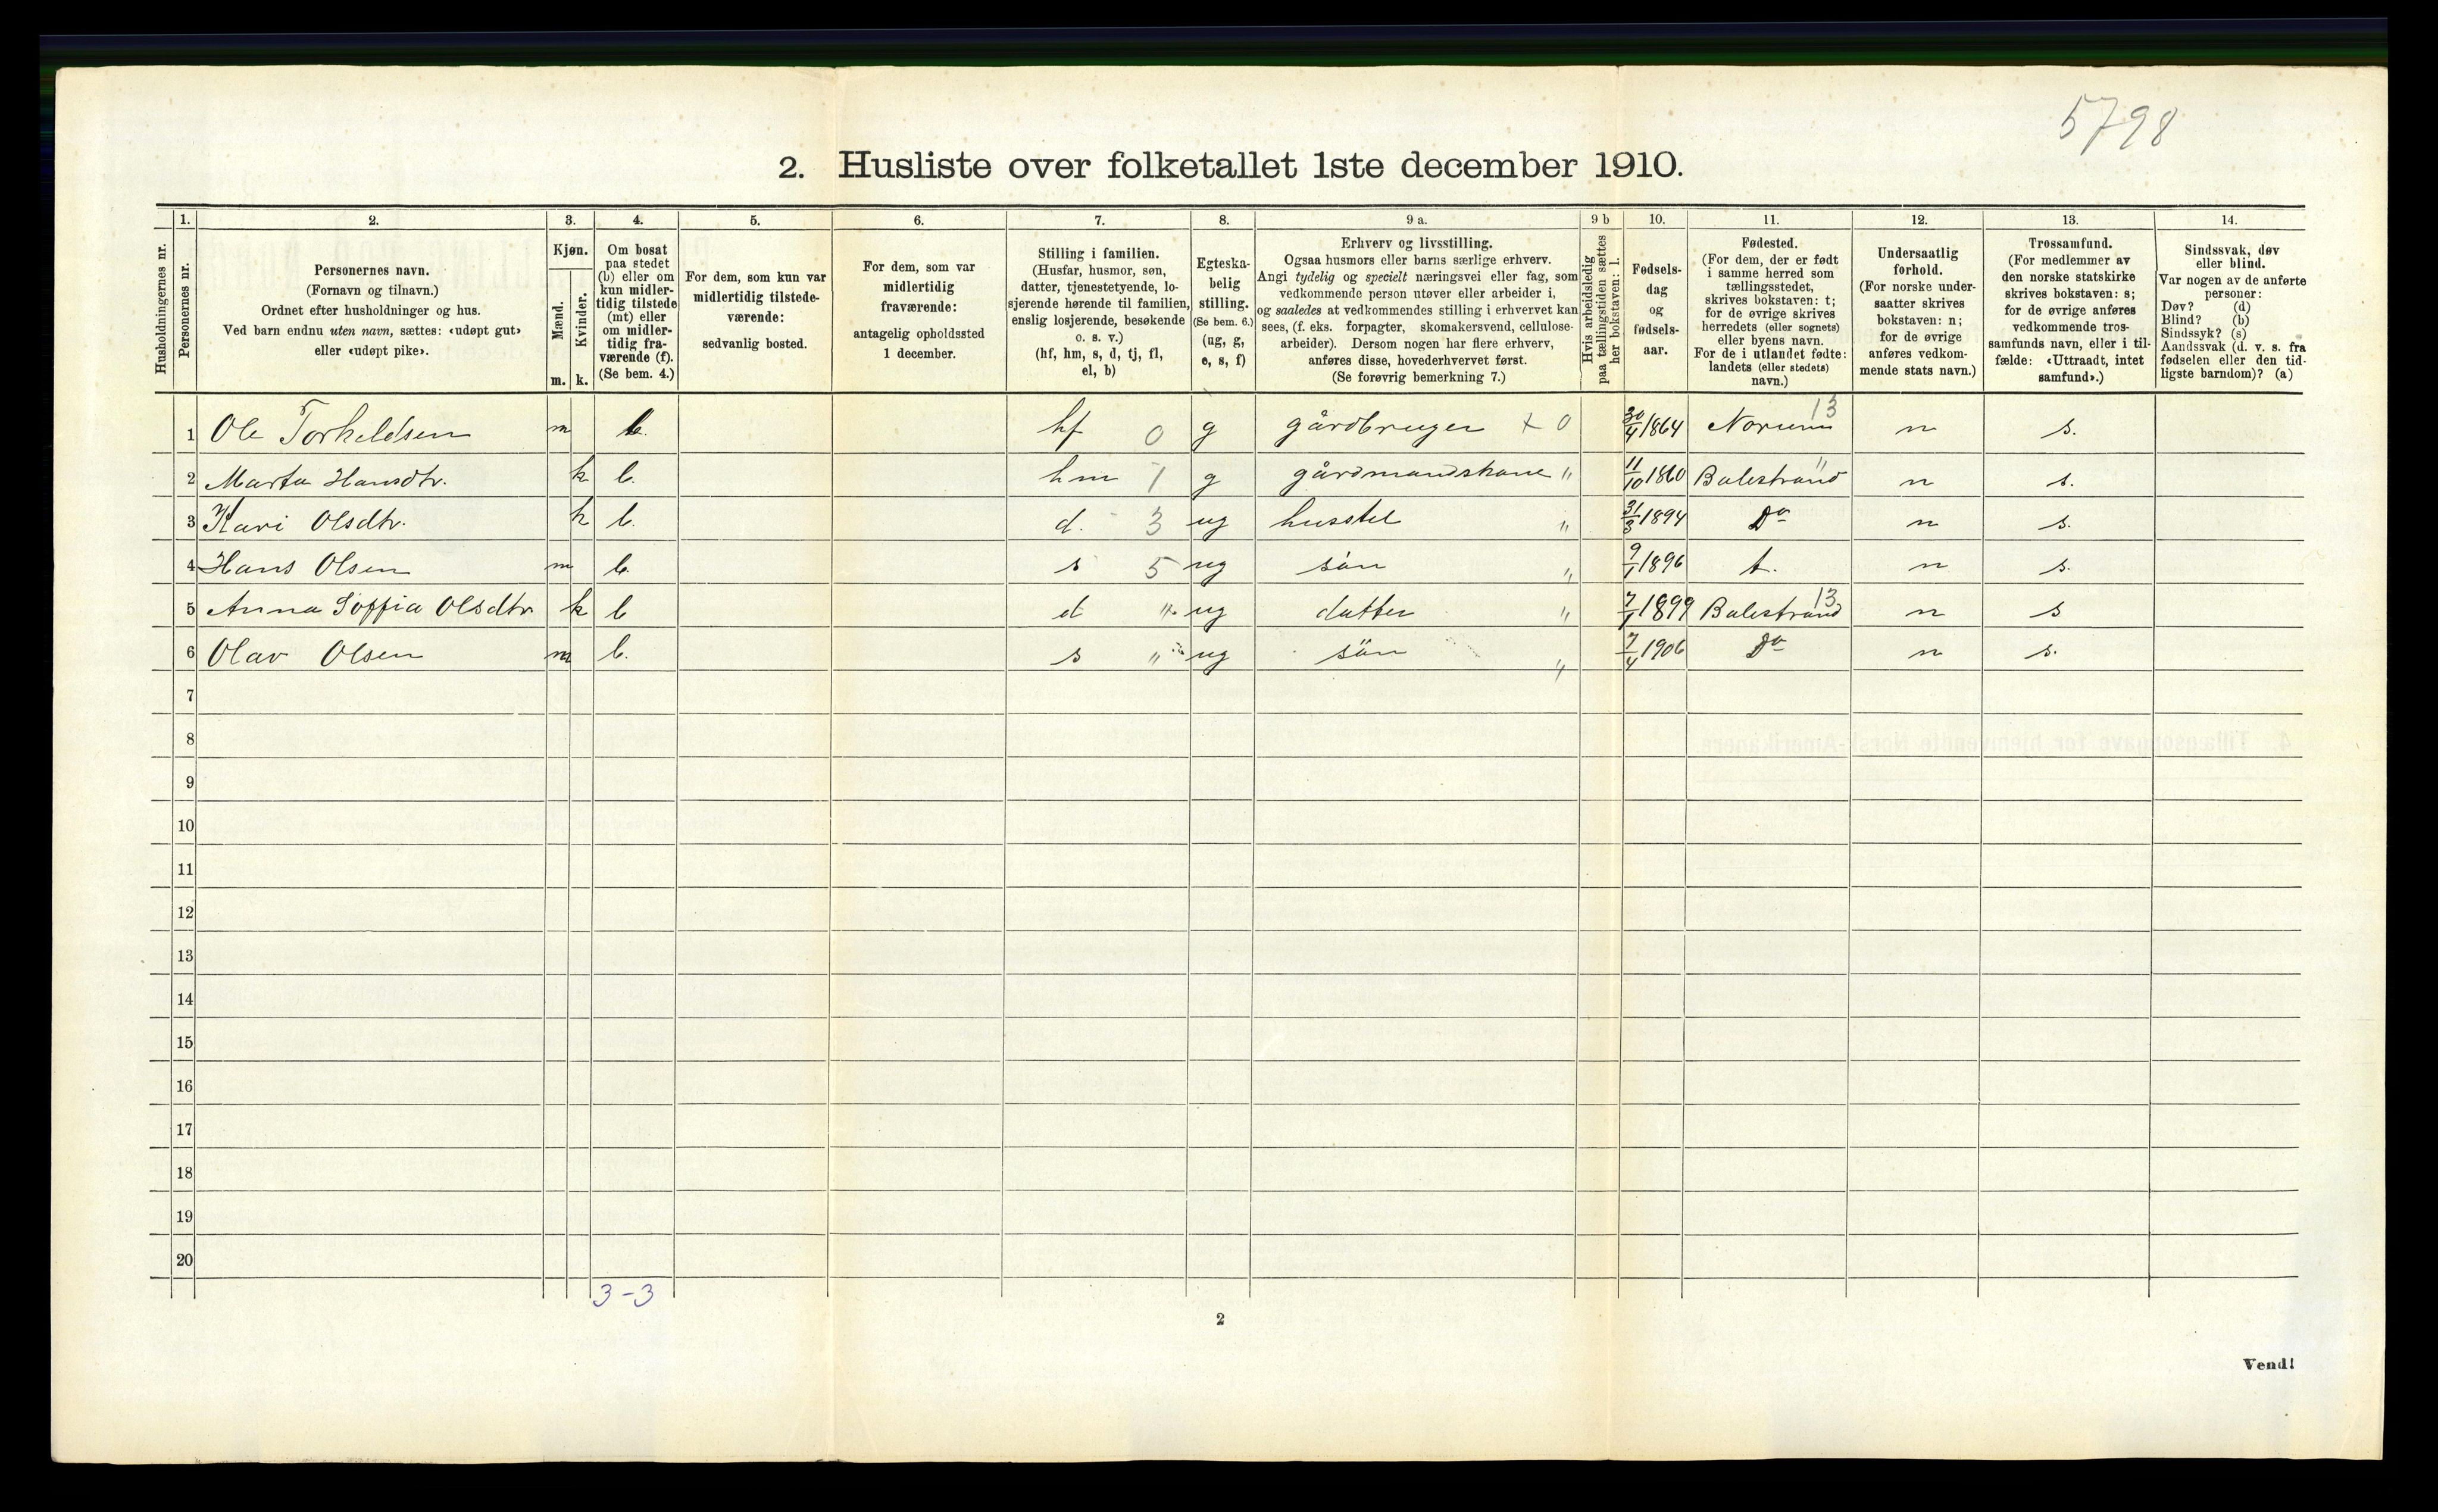 5798
2. Husliste over folketallet 1ste december 1910.
1. 2. 3. 4. 5. 6. 7. 8. 9 a. 9 b 10. 11. 12. 13. 14.
Husholdningernes nr.
Personernes nr.
Personernes navn.
(Fornavn og tilnavn.)
Ordnet efter husholdninger og hus.
Ved barn endnu uten navn, sættes: «udøpt gut»
eller «udøpt pike».
Kjøn.
Mænd.
Kvinder.
m. k.
Om bosat
paa stedet
(b) eller om
kun midler-
tidig tilstede
(mt) eller
om midler-
tidig fra-
værende (f).
(Se bem. 4.)
For dem, som kun var
midlertidig tilstede-
værende:
sedvanlig bosted.
For dem, som var
midlertidig
fraværende:
antagelig opholdssted
1 december.
Stilling i familien.
(Husfar, husmor, søn,
datter, tjenestetyende, lo-
sjerende hørende til familien,
enslig losjerende, besøkende
o. s. v.)
(hf, hm, s, d, tj, fl,
el, b)
Egteska-
belig
stilling.
(Se bem. 6.)
(ug, g,
e, s, f)
Erhverv og livsstilling.
Ogsaa husmors eller barns særlige erhverv.
Angi tydelig og specielt næringsvei eller fag, som
vedkommende person utøver eller arbeider i,
og saaledes at vedkommendes stilling i erhvervet kan
sees, (f. eks. forpagter, skomakersvend, cellulose-
arbeider). Dersom nogen har flere erhverv,
anføres disse, hovederhvervet først.
(Se forøvrig bemerkning 7.)
Hvis arbeidsledig
paa tællingstiden sættes
her bokstaven: l.
Fødsels-
dag
og
fødsels-
aar.
Fødested.
(For dem, der er født
i samme herred som
tællingsstedet,
skrives bokstaven: t;
for de øvrige skrives
herredets (eller sognets)
eller byens navn.
For de i utlandet fødte:
landets (eller stedets)
navn.)
Undersaatlig
forhold.
(For norske under-
saatter skrives
bokstaven: n;
for de øvrige
anføres vedkom-
mende stats navn.)
Trossamfund.
(For medlemmer av
den norske statskirke
skrives bokstaven: s;
for de øvrige anføres
vedkommende tros-
samfunds navn, eller i til-
fælde: «Uttraadt, intet
samfund».)
Sindssvak, døv
eller blind.
Var nogen av de anførte
personer:
Døv? (d)
Blind? (b)
Sindssyk? (s)
Aandssvak (d. v. s. fra
fødselen eller den tid-
ligste barndom)? (a)
1 Ole Torkeldsen m b. hf 0 g gårdbruger + 0 30/4 1864 Norum 13 n s.
2 Marta Hansdtr. k b. hm 1 g gårdmandskone " 11/10 1860 Balestrand " n s.
3 Kari Olsdtr. k b. d. 3 ug husstel " 31/3 1894 Do n s.
4 Hans Olsen m b. s 5 ug sön " 9/1 1896 t. n s.
5 Anna Soffia Olsdtr k b d " ug datter " 7/1 1899 Balestrand 13 n s
6 Olav Olsen m b. s " ug sön " 7/4 1906 Do n s.
7
8
9
10
11
12
13
14
15
16
17
18
19
20
3-3
2
Vend!